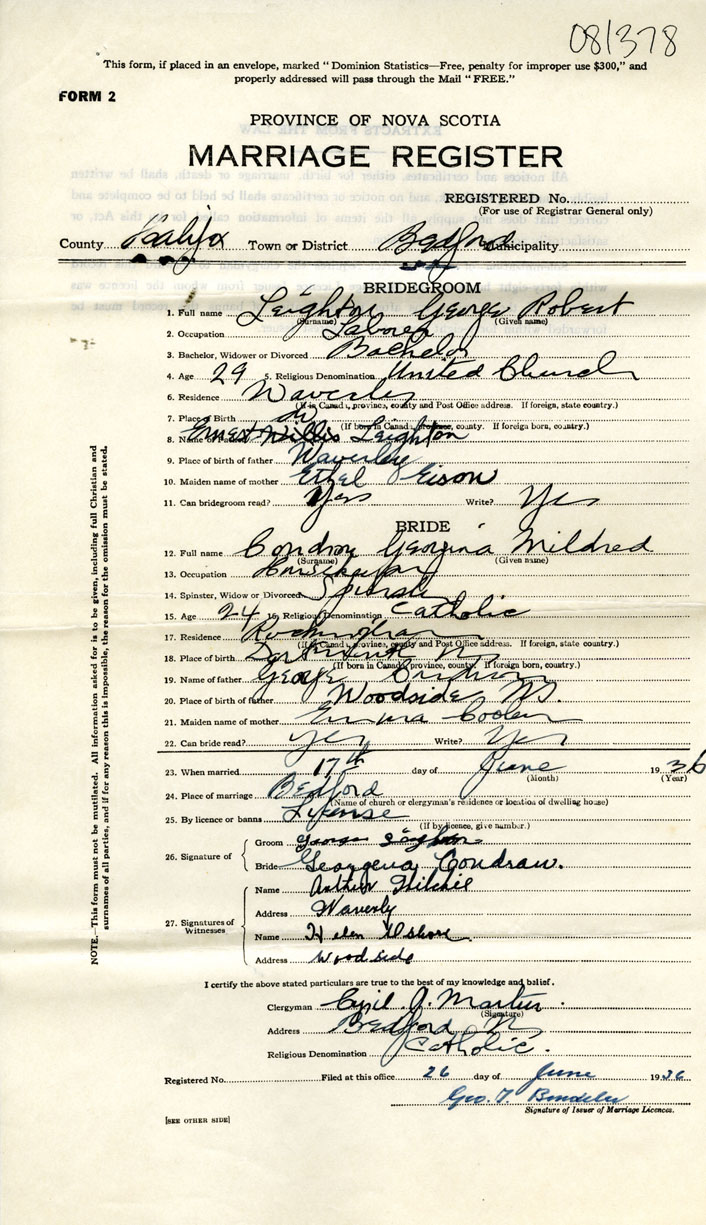 081378
This form, if placed in an envelope, marked "Dominion Statistics—Free, penalty for improper use $300," and
properly addressed will pass through the Mail "FREE."
FORM 2
PROVINCE OF NOVA SCOTIA
MARRIAGE REGISTER
REGISTERED No.
(For use of Registrar General only)
County Halifax Town or District Bedford Municipality
BRIDEGROOM
1. Full name Leighton George Robert
(Surname) (Given name)
2. Occupation Laborer
3. Bachelor, Widower or Divorced Bachelor
4. Age 29 5. Religious Denomination United Church
6. Residence Waverley
(If in Canada, province, county and Post Office address. If foreign, state country.)
7. Place of Birth do
(If born in Canada, province, county. If foreign born, country.)
8. Name of father Ernest Willis Leighton
9. Place of birth of father Waverley
10. Maiden name of mother Ethel Eison
11. Can bridegroom read? Yes Write? Yes
BRIDE
12. Full name Condron Georgina Mildred
(Surname) (Given name)
13. Occupation
14. Spinster, Widow or Divorced Spinster
15. Age 24 16. Religious Denomination Catholic
17. Residence Rockingham
(If in Canada, province, county and Post Office address. If foreign, state country.)
18. Place of birth
(If born in Canada, province, county. If foreign born, country.)
19. Name of father George
20. Place of birth of father Woodside NS.
21. Maiden name of mother Emma Coolen
22. Can bride read? yes Write? Yes
23. When married 17th day of June 1936
(Month) (Year)
24. Place of marriage Bedford
(Name of church or clergyman's residence or location of dwelling house)
25. By licence or banns License
(If by licence, give number.)
26. Signature of
Groom George Leighton
Bride Georgena Condraw.
27. Signatures of Witnesses
Name Arthur
Address Waverly
Name Helen
Address Woodside
I certify the above stated particulars are true to the best of my knowledge and belief.
Clergyman Cyril A. Martin.
(Signature)
Address Bedford
Religious Denomination Catholic.
Registered No. Filed at this office 26 day of June 1936
Geo. T.
Signature of Issuer of Marriage Licences.
[SEE OTHER SIDE]
NOTE.—This form must not be mutilated. All information asked for is to be given, including full Christian and
surnames of all parties, and if for any reason this is impossible, the reason for the omission must be stated.